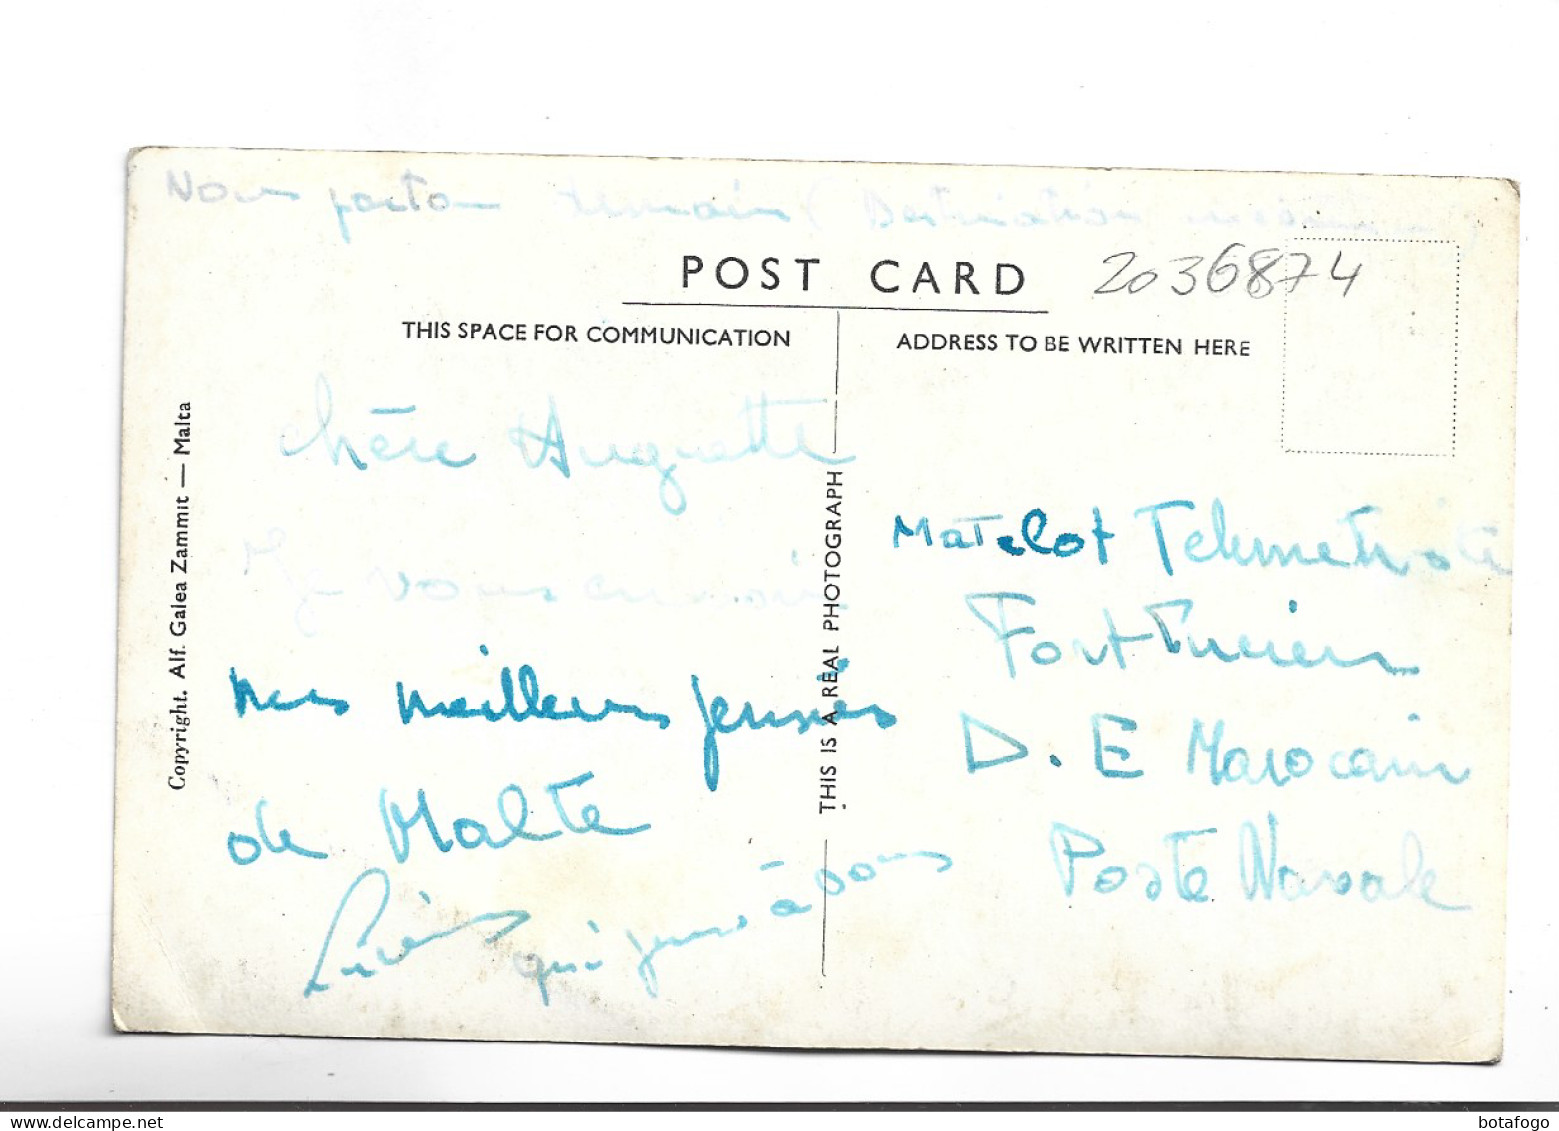 Nous partons demain ( Destination inconnue )
POST CARD
2036874
THIS SPACE FOR COMMUNICATION
ADDRESS TO BE WRITTEN HERE
Copyright. Alf. Galea Zammit — Malta
THIS IS A REAL PHOTOGRAPH
chère Huguette
Je vous envoie
mes meilleures pensées
de Malte
Lucien qui pense à vous
Matelot Telemetriste
Fort Lucien
D. E Marocain
Poste Navale
botafogo